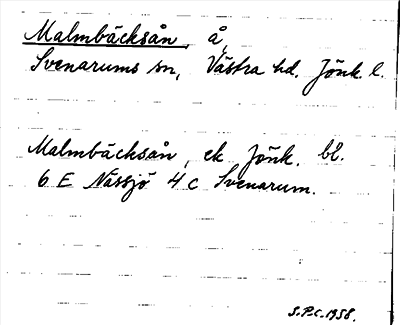 Malmbäcksån, å,
Svenarums sn, Västra hd. Jönk. l.
Malmbäcksån, ek Jönk. bl.
6 E Nässjö 4 c Svenarum.
S.P.C. 1958.